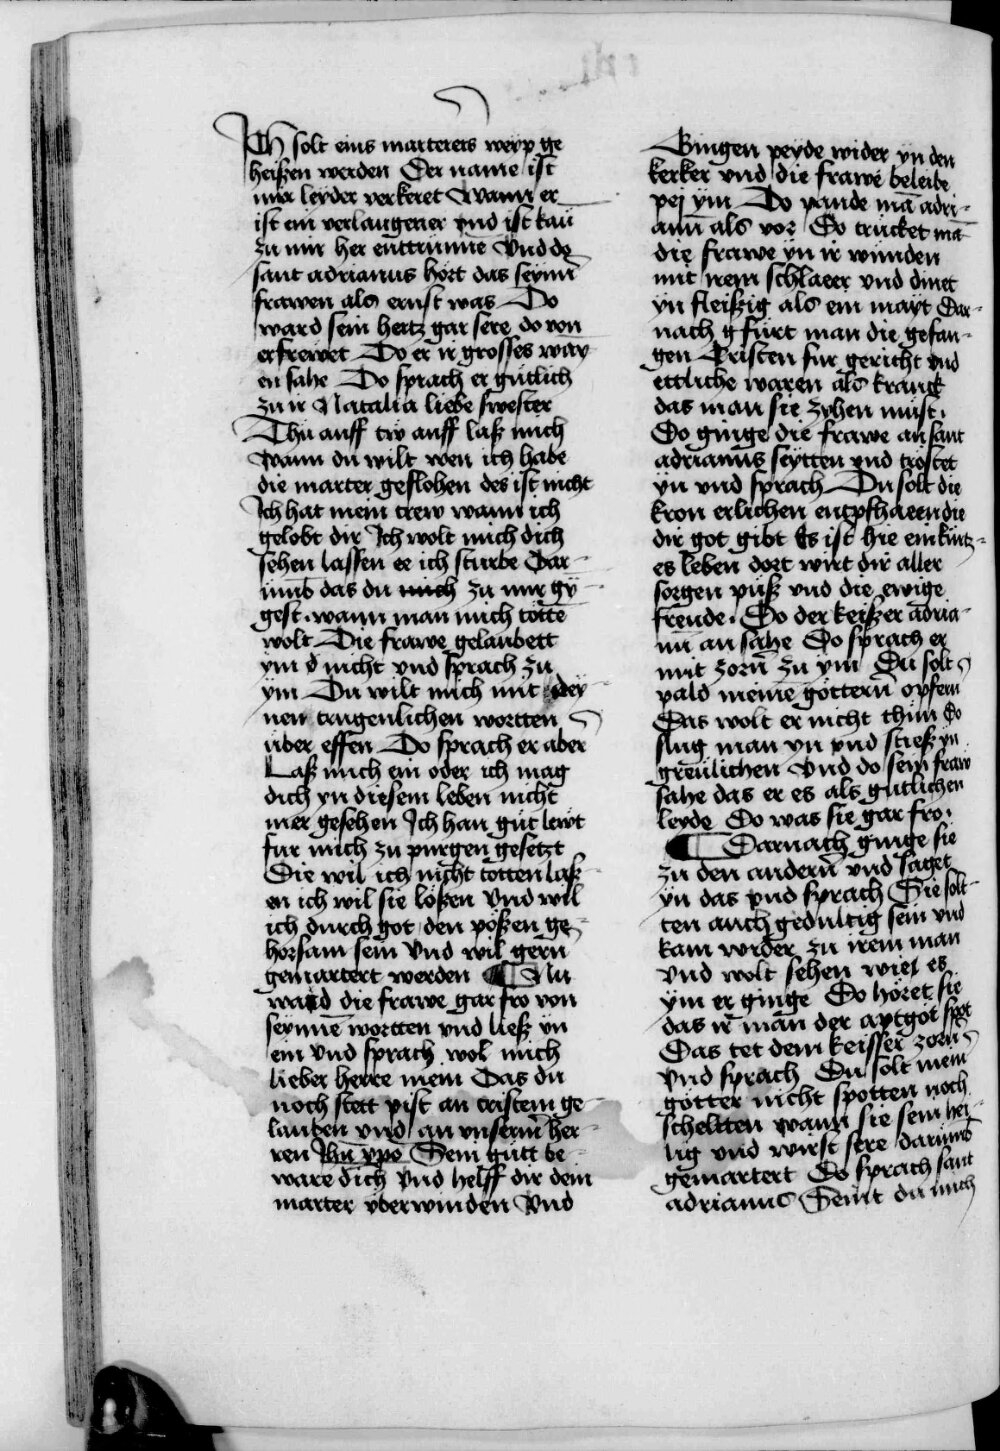 Ich solt eins marterers weyp ge
heißen werden Der name ist
mir leyder verkeret Wann er
ist ein verlaugener vnd ist kaū
zu mir her enttrunnē Vnd do
sant adrianus hört das seynn̄
frawen als ernst was Do
ward sein hertz gar sere do von
erfrewet Do er ir grosses way
en sahe Do sprach er gütlich
zu ir Natalia liebe swester
Thu auff tw auff laß mich
wann du wilt wen ich habe
die marter geflohen des ist nicht
Ich hat mein trew wann ich
gelobt dir Ich wolt mich dich
sehen lassen ee ich sturbe Dar-
ümb das du mich zu mir gỹ-
gest. wann man mich tötten
wolt Die frawe gelaubett
ym d nicht vnd sprach zu
ym Du wilt mich mit dey
nen trugenlichen wortten
über effen Do sprach er aber
Laß mich ein oder ich mag
dich yn diesem leben nicht
mer gesehen Ich han gut lewt
fur mich zu purgen gesetzt
Die wil ich nicht totten laß-
en ich wil sie lößen Vnd wil
ich durch got den pößen ge-
horsam sein Vnd wil gern
gemartert werden ¶ Nu
ward die frawe gar fro von
seynnē wortten vnd ließ yn
ein Vnd sprach wol mich
lieber herre mein Das du
noch stett pist an cristem ge-
lauben vnd an vnserm̄ her-
ren Jhū xpō Sein gütt be-
ware dich Vnd helff dir dein
marter vberwinden Vnd
Gingen peyde wider yn den
kerker vnd die frawe beleibe
pej ym Do pande mā adri-
anū als vor Do trücket mā
die frawe yn ir wunden
mit irem schlaeer vnd dinet
yn fleißig als ein mayt Dar-
nach g fürt man die gefan-
gen Kristen fur gericht vnd
ettliche waren als kranck
das man sie zyhen müst.
Do ginge die frawe an sant
adrianus seytten vnd tröstet
yn vnd sprach Du solt die
kron erlichen entpfhaeen die
dir got gibt Es ist hie ein kurtz-
es leben dort wirt dir aller
sorgen püß vnd die ewige
freude. Do der keißer adria-
nū an sahe Do sprach er
mit zorn̄ zu ym Du solt
pald meine göttern̄ opfern
Das wolt er nicht thun Do
slug man yn vnd stieß yn
greulichen Vnd do sein fraw
sahe das er es als gütlichen
leyde Do was sie gar fro.
¶ Darnach ginge sie
zu den andern̄ vnd saget
yn das vnd sprach Sie solt-
ten auch gedultig sein vnd
kam wider zu irem man
Vnd wolt sehen wie es
ym er ginge Do höret sie
das ir man der aptgöt spot
Das tet dem keisser zorn̄
Vnd sprach Du solt mein
götter nicht spotten noch
scheltten wann sie sein hei-
lig vnd wirst sere darumb
gemartert Do sprach sant
adrianus Seint du mich